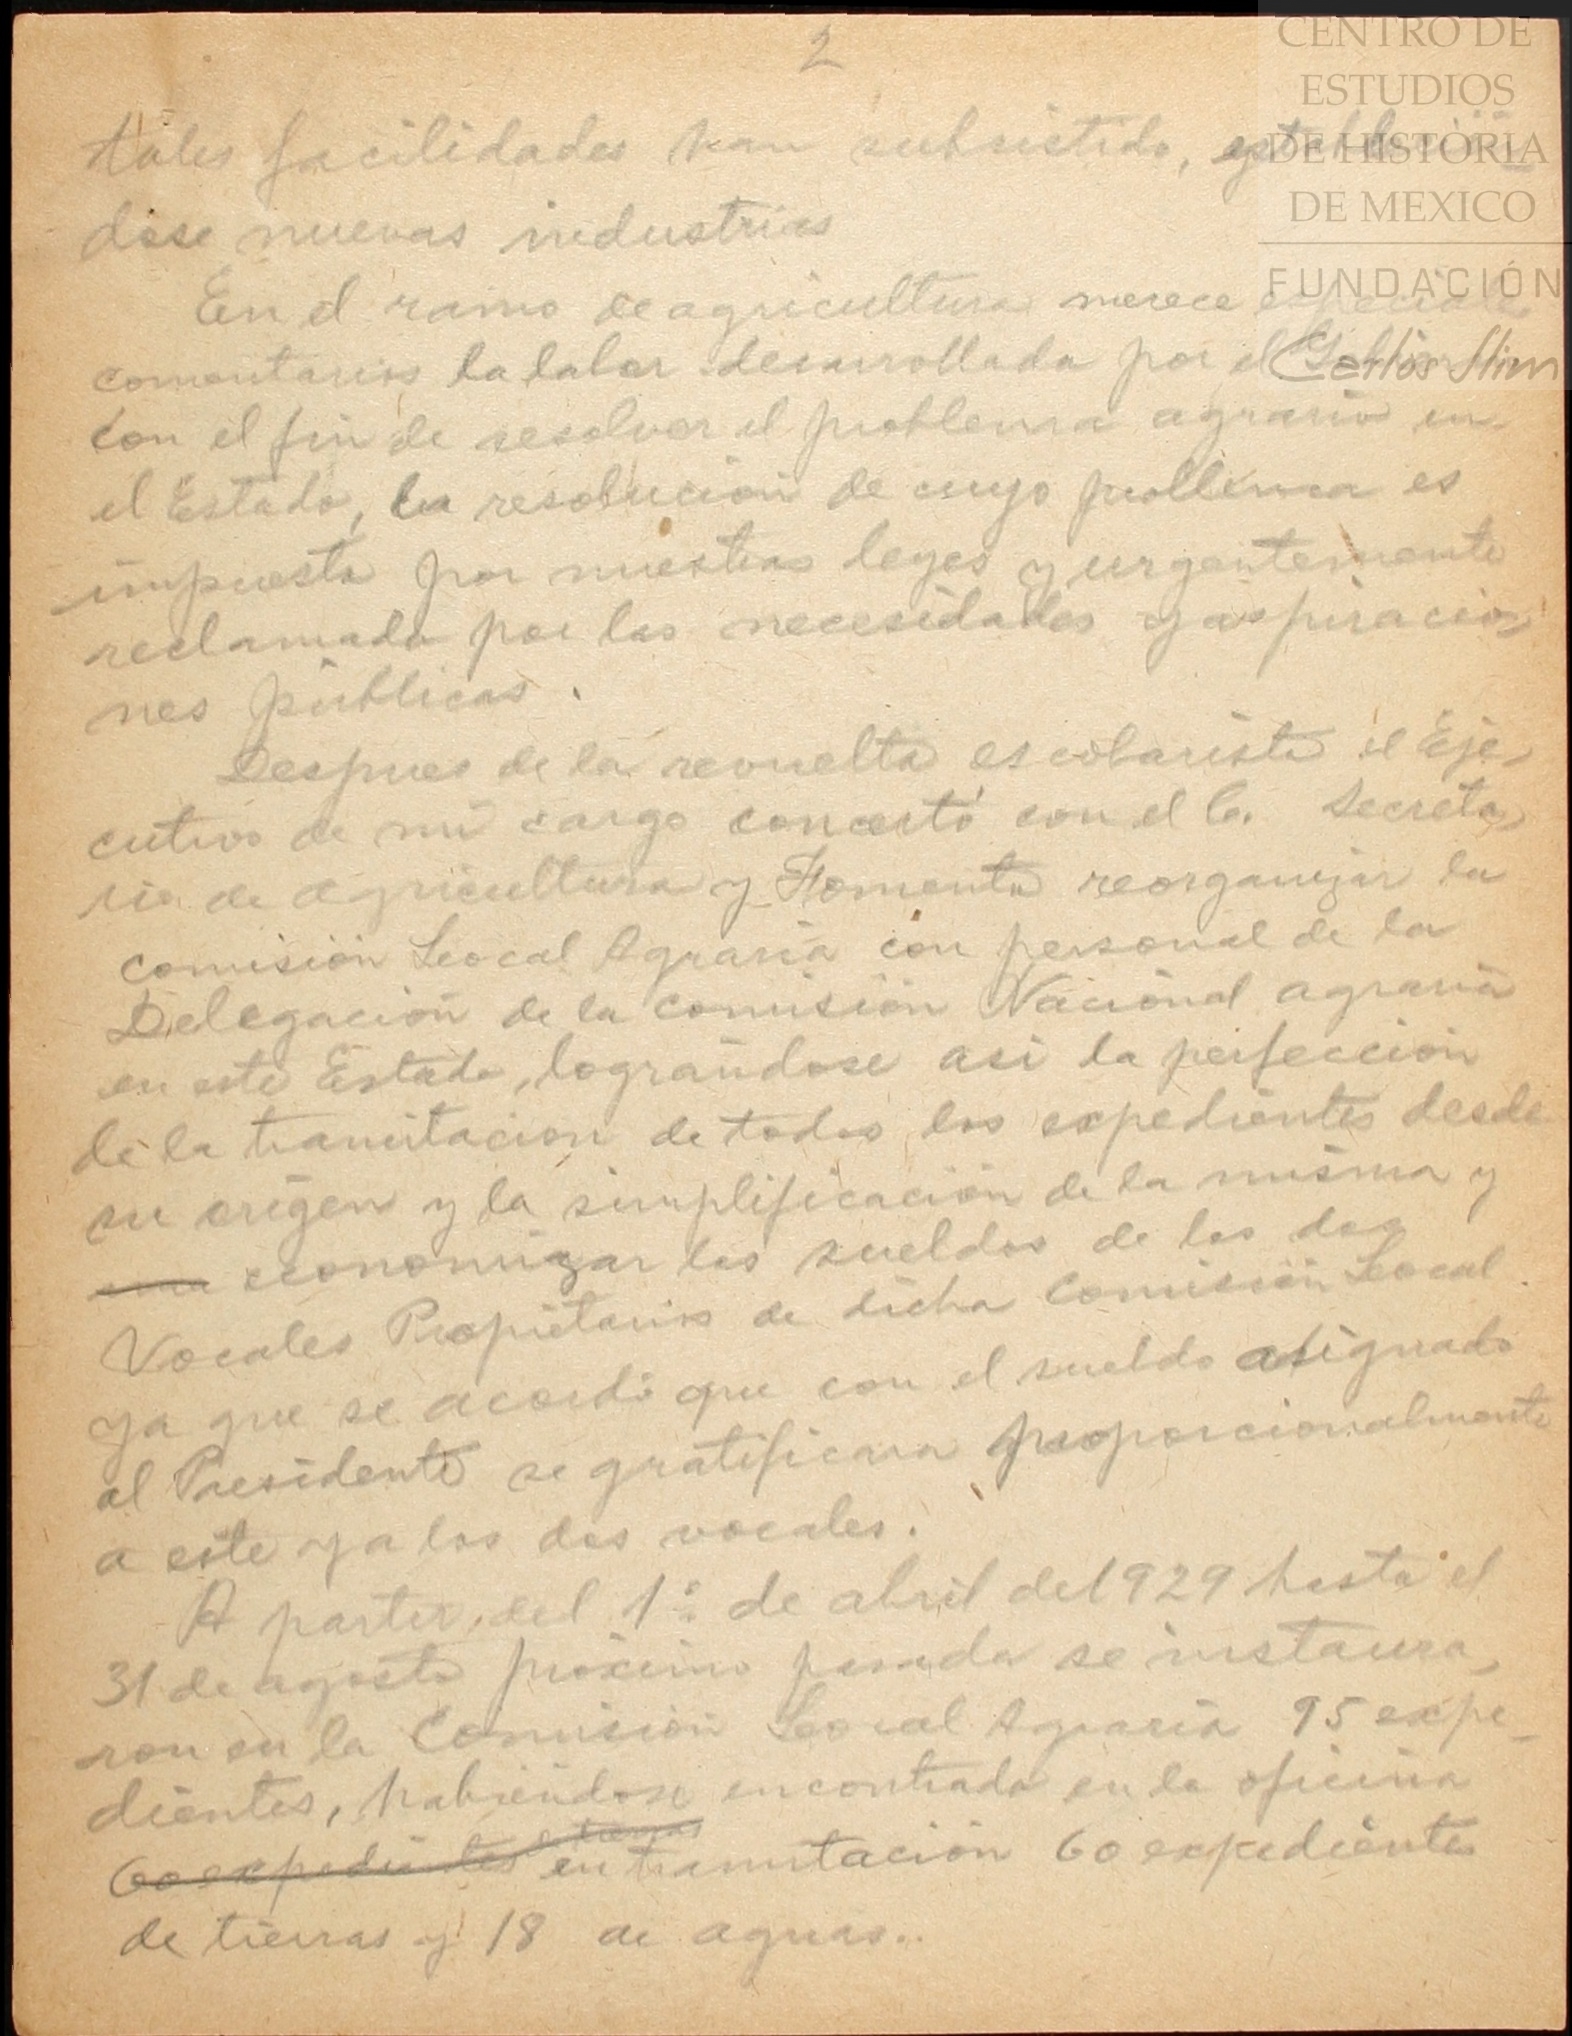 2
tales facilidades han subsistido, establecién
dose nuevas industrias
En el ramo de agricultura merece especiales
comentarios la labor desarrollada por el
con el fin de resolver el problema agrario en
el Estado, la resolución de cuyo problema es
impuesta por nuestras leyes y urgentemente
reclamada por las necesidades y aspiracio-
nes públicas.
Despues de la revuelta escobarista el Eje-
cutivo de mi cargo concertó con el C. Secreta-
rio de agricultura y Fomento reorganizar la
comisión Local Agraria con personal de la
Delegación de la comisión Nacional agraria
en este Estado, lográndose asi la perfección
de la tramitacion de todos los expedientes desde
su origen y la simplificación de la misma y
economizar los sueldos de los dos
Vocales Propietarios de dicha Comisión Local
ya que se acordó que con el sueldo asignado
al Presidente se gratificara proporcionalmente
a este y a los dos vocales.
A partir del 1º de abril de 1929 hasta el
31 de agosto próximo pasado se instaura-
ron en la Comisión Local Agraria 95 expe-
dientes, habiéndose encontrado en la oficina
60 expedientes de tierras en tramitación 60 expedientes
de tierras y 18 de aguas..
CENTRO DE
ESTUDIOS
DE HISTORIA
DE MEXICO
FUNDACIÓN
Carlos Slim